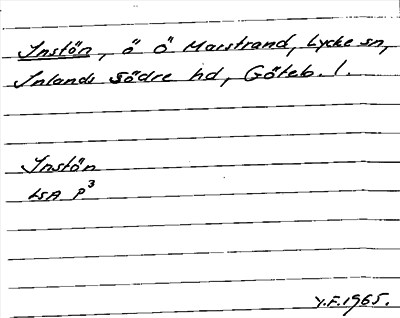 Instön, ö Ö Marstrand, Lycke sn,
Inlands Södre hd, Göteb. l.
Instön
LSA P³
Y.F. 1965.